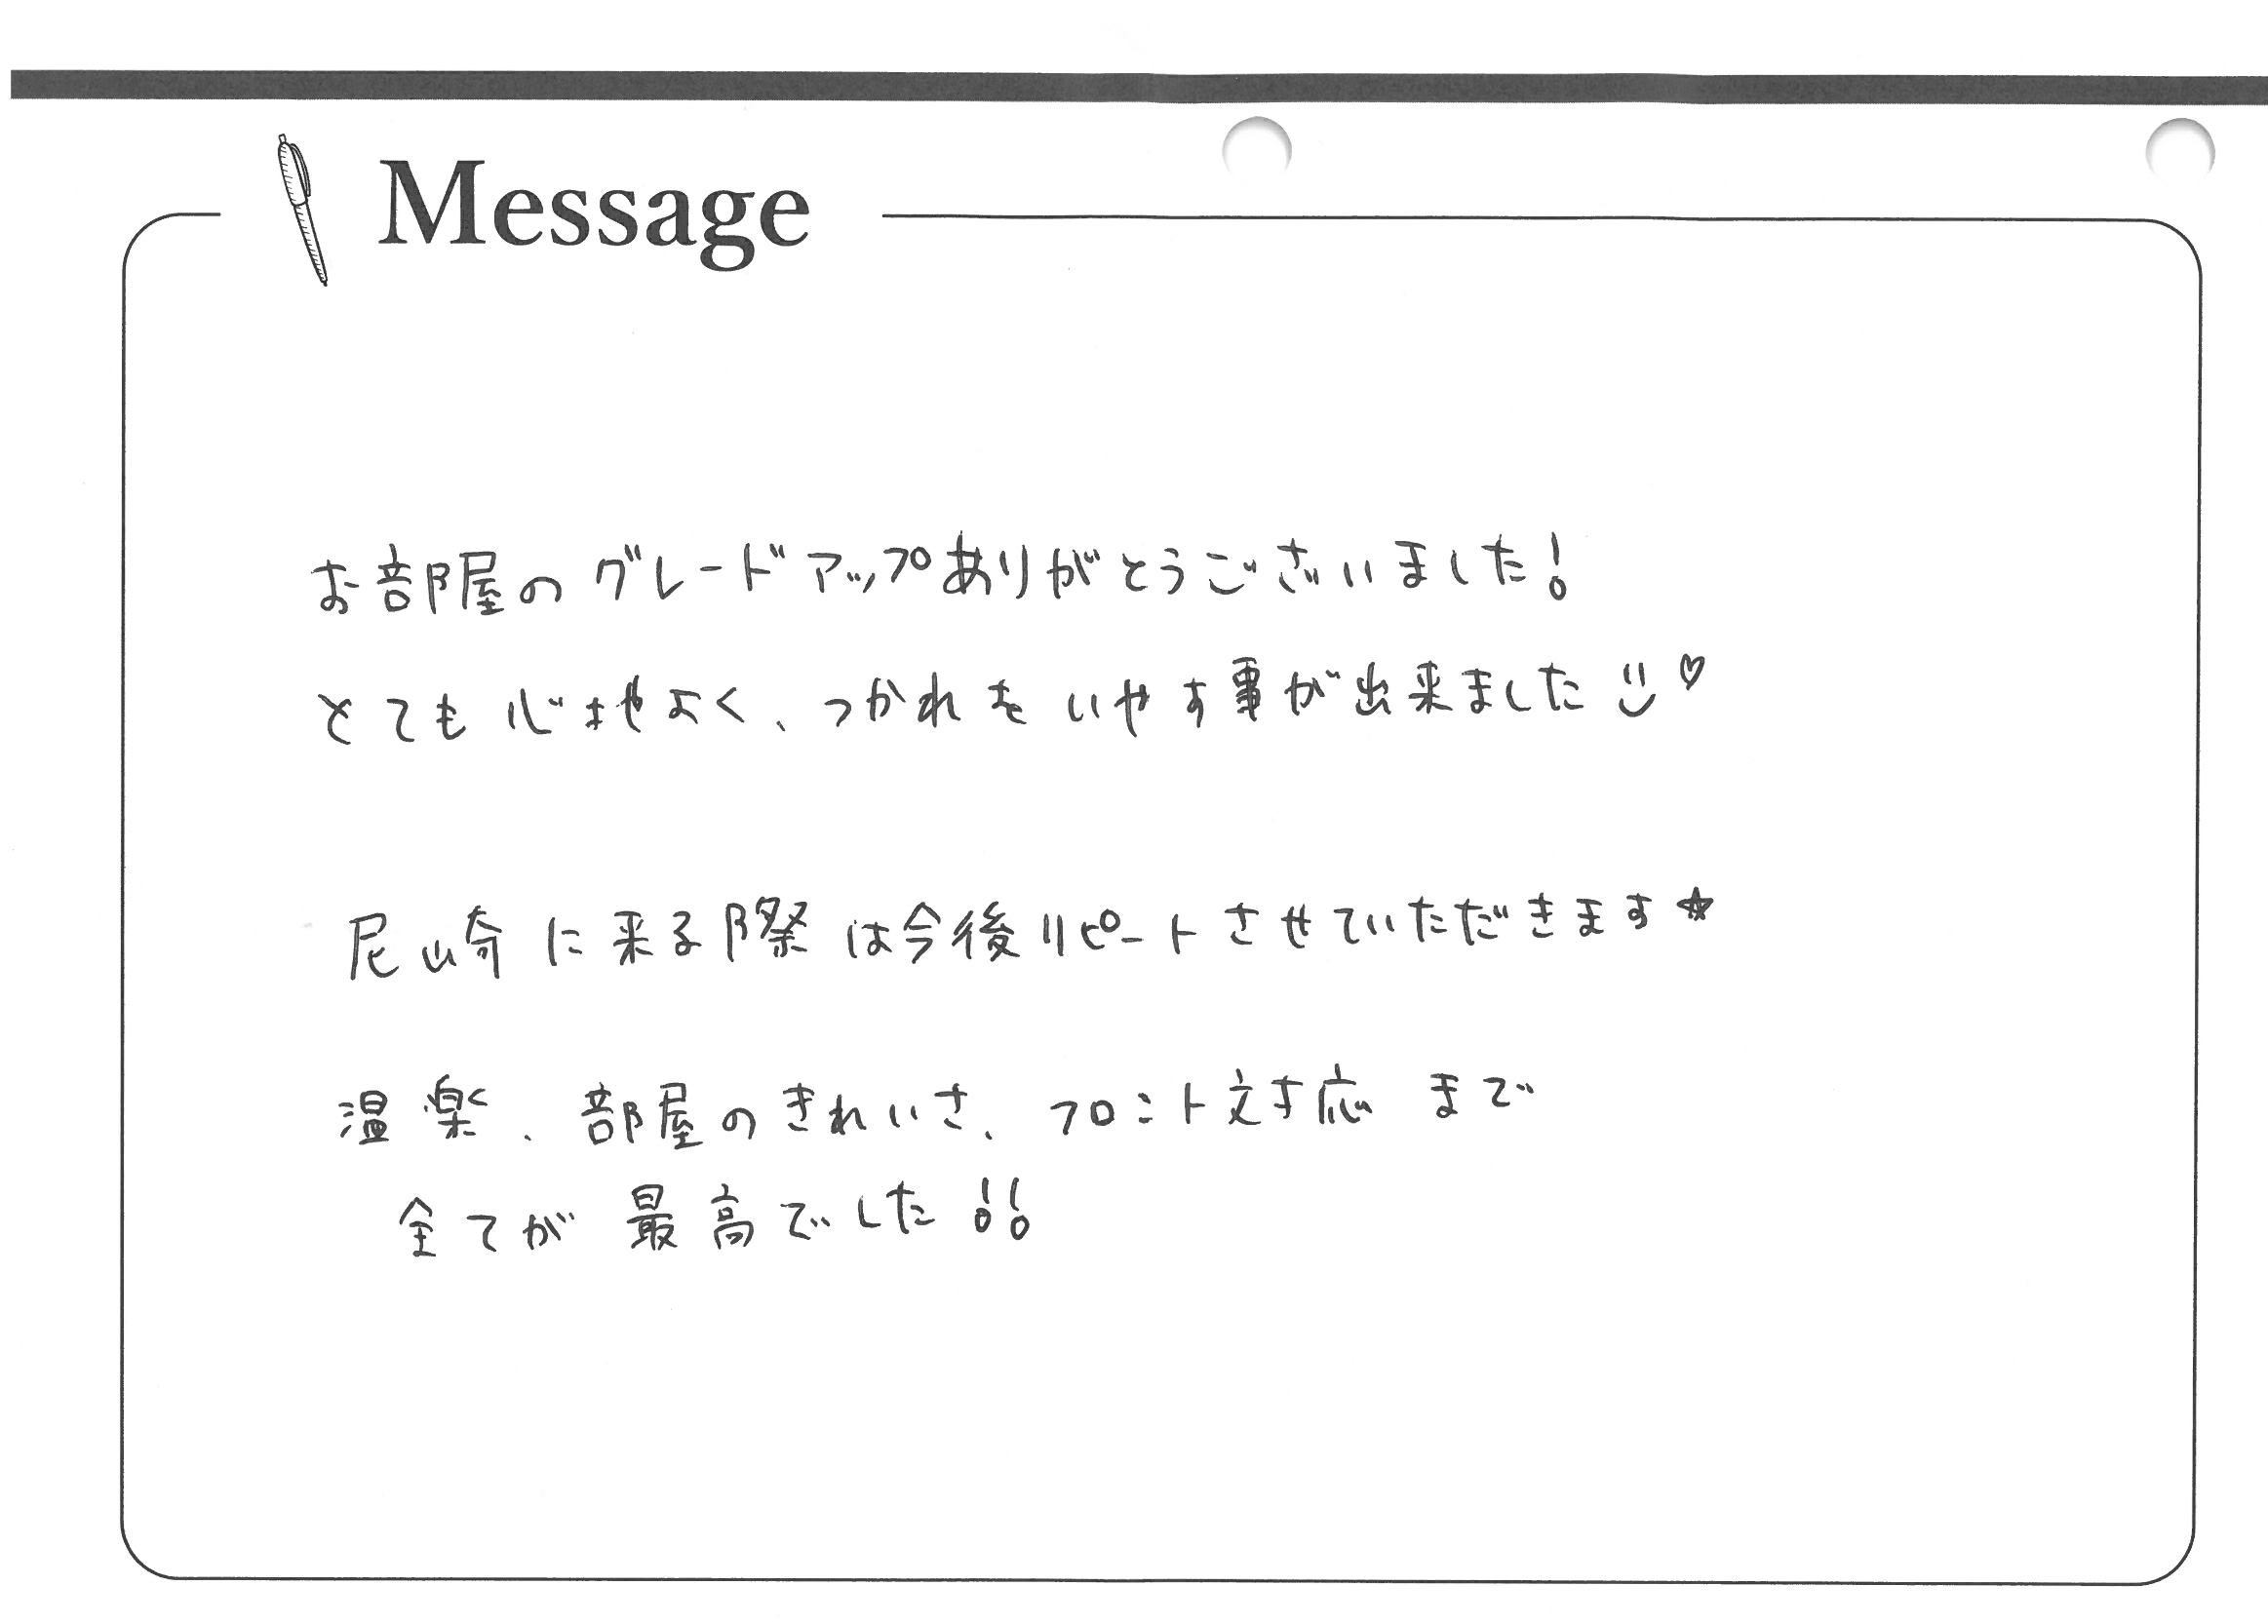 Message
お部屋のグレードアップありがとうございました!
とても心地よく、つかれをいやす事が出来ました♡
尼崎に来る際は今後リピートさせていただきます☆
温楽、部屋のきれいさ、フロント対応 まで
全てが 最高でした!!